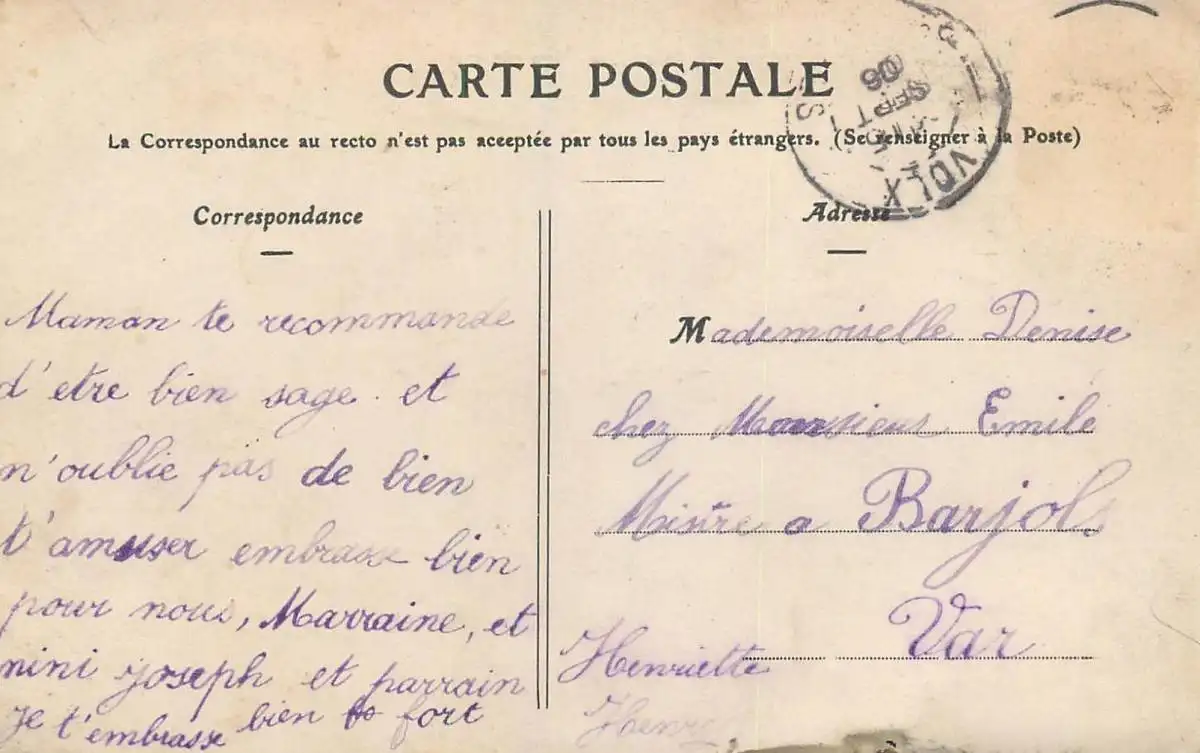 CARTE POSTALE
La Correspondance au recto n'est pas acceptée par tous les pays étrangers. (Se renseigner à la Poste)
VOLX
SEPT
06
Correspondance
Maman te recommande
d'etre bien sage et
n'oublie pas de bien
t'amuser embrasse bien
pour nous, Marraine, et
nini joseph et parrain
je t'embrasse bien fort
Henriette
Adresse
Mademoiselle Denise
chez Monsieur Emile
Mistre a Barjols
Var